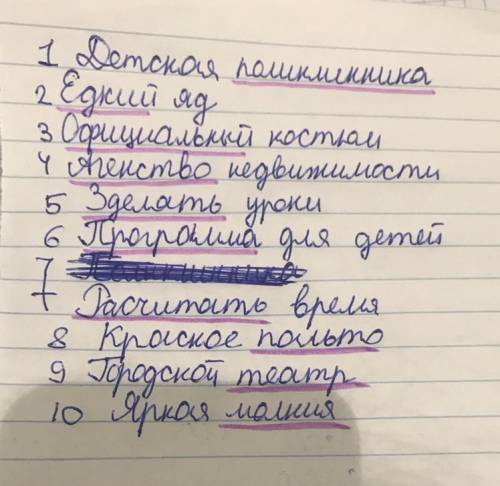 1 Детская поликлинника
2 Едкий яд
3 Официальный костюм
4 Агенство недвижимости
5 Зделать уроки
6 Программа для детей
7
7 Расчитать время
8 Красное пальто
9 Городской театр
10 Яркая молния